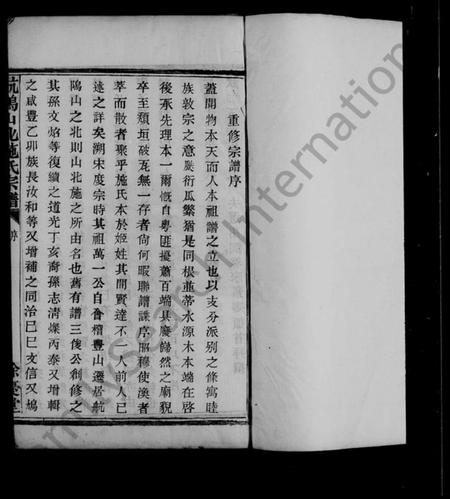 重修宗譜序
蓋開物本天而人本祖譜之立也以支分派別之條寓睦
族敦宗之意縣衍瓜繁猶是同根並蒂水源木本端在啓
後承先理本一爾慨自粵匪擾蕭百端具廢歸然之廟貌
卒至頹垣破瓦無一存者尚何暇聯譜諜序昭穆使渙者
萃而散者聚乎施氏本於姬姓其間賢達不人前人已
述之詳矣溯宋度宗時其祖萬一公自會稽豊山遷居航
隖山之北則山北施之所由名也舊有譜三俊公創修之
其孫文焰等復續之道光丁亥裔孫志清燦丙泰又增輯
之咸豊乙卯族長汝和等又增補之同治己巳文信又塢
航鳴山北施氏宗譜
序
餘慶堂
mysearch International